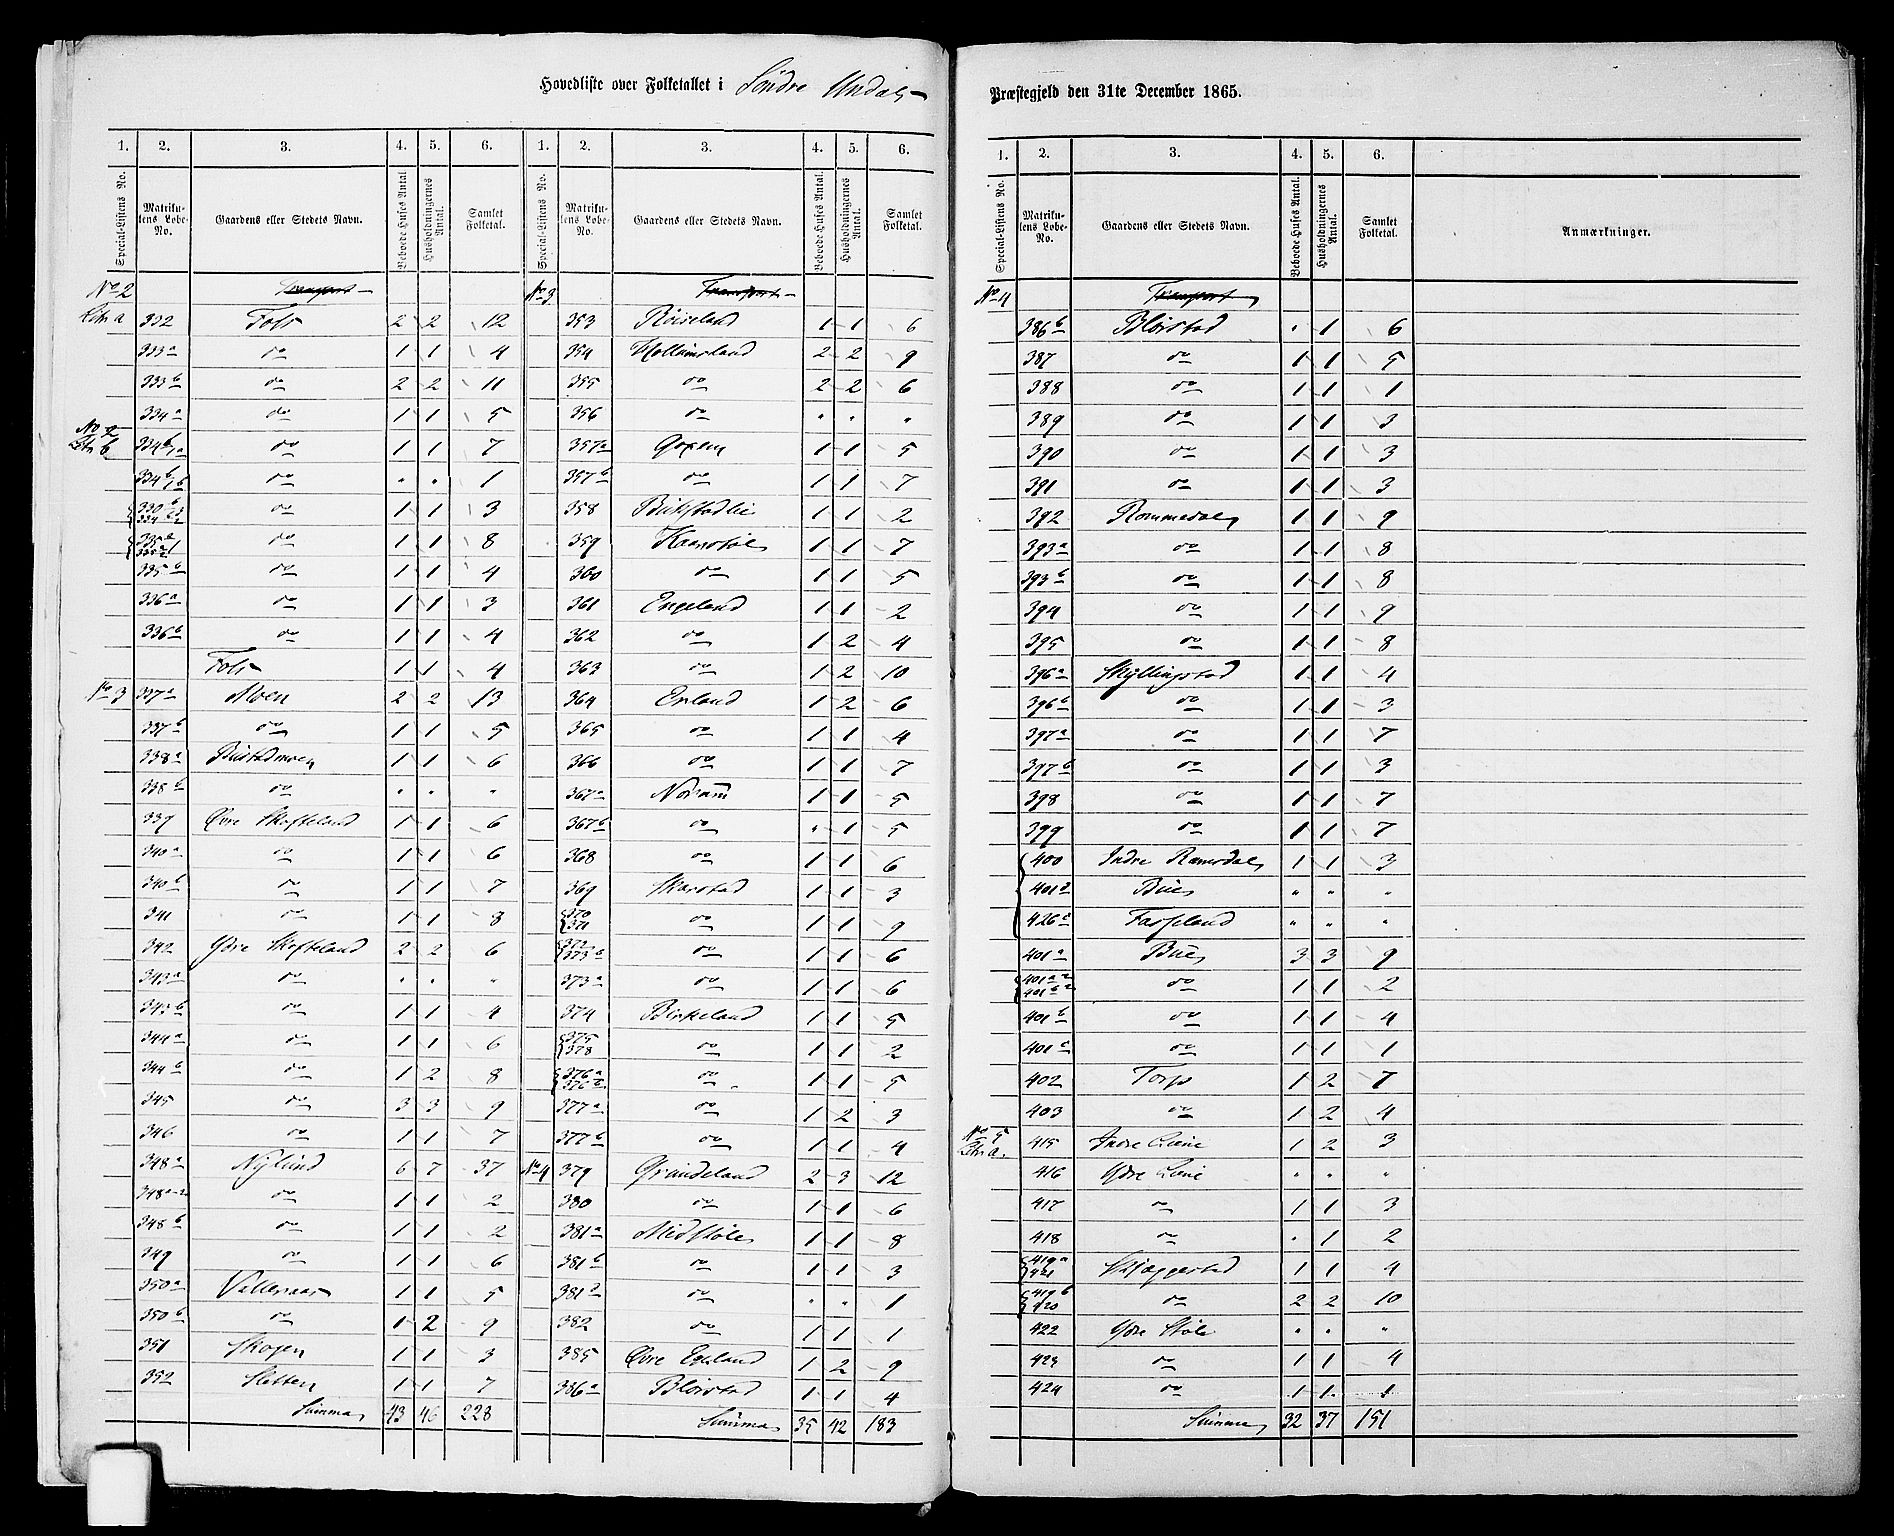 Hovedliste over Folketallet i Söndre Undals
Præstegjeld den 31te December 1865.
1. 2. 3. 4. 5. 6.
Special-Listens No. Matrikulens Lobe-No. Gaardens eller Stedets Navn. Beboede Huses Antal. Husholdningernes Antal. Samlet Folketal.
No 2 Transport
Litr a 332 Foss 2 2 12
333a do 1 1 4
333b do 2 2 11
334a do 1 1 5
No 2
Litr b 334b1a do 1 1 7
334b1b do " " 1
do 1 1 3
do 1 1 8
335b do 1 1 4
336a do 1 1 3
336b do 1 1 4
Foss 1 1 4
No 3 337a Moen 2 2 13
337b do 1 1 5
338a Bustadmoen 1 1 6
338b do " " "
339 Övre Skofteland 1 1 6
340a do 1 1 6
340b do 1 1 7
341 do 1 1 8
342 Ydre Skofteland 2 2 6
343a do " " "
343b do 1 1 4
344a do 1 1 6
344b do 1 2 8
345 do 3 3 9
346 do 1 1 7
348a Nylund 6 7 37
348a-2 do 1 1 2
348b do 1 1 2
349 do 1 1 6
350a Valleraas 1 1 5
350b do 1 2 9
351 Skogen 1 1 3
352 Sletten 1 1 7
Summa 43 46 228
1. 2. 3. 4. 5. 6.
Special-Listens No. Matrikulens Lobe-No. Gaardens eller Stedets Navn. Beboede Huses Antal. Husholdningernes Antal. Samlet Folketal.
No 3 Transport
353 Röiseland 1 1 6
354 Hollumsland 2 2 9
355 do 2 2 6
356 do " " "
357a 1 1 5
357b do 1 1 7
358 Bukstadlie 1 1 2
359 1 1 7
360 do 1 1 5
361 Engeland 1 1 2
362 do 1 2 4
363 do 1 2 10
364 Erland 1 2 6
365 do 1 1 4
366 do 1 1 7
367a Nodrum 1 1 5
367b do " 1 5
368 do 1 1 6
369 Skarstad 1 1 3
370 371 do 1 1 9
372 373b do 1 1 6
373a do 1 1 6
374 Birkeland 1 1 5
375 378 do 1 1 2
376a 376b do 1 1 5
377a do 1 2 3
377b do 1 1 4
No 4 379 Grundeland 2 3 12
380 do 1 1 6
381a Midstöle 1 1 8
381b do 1 1 3
381 2 do " " 1
382 do 1 1 1
385 Övre Egeland 1 2 9
386a Blörstad 1 1 4
Summa 35 42 183
1. 2. 3. 4. 5. 6.
Special-Listens No. Matrikulens Lobe-No. Gaardens eller Stedets Navn. Beboede Huses Antal. Husholdningernes Antal. Samlet Folketal. Anmærkninger.
No 4 Transport
386b Blörstad " 1 6
387 do 1 1 5
388 do 1 1 1
389 do 1 1 3
390 do 1 1 3
391 do 1 1 3
392 Rommedal 1 1 9
393a do 1 1 8
393b do 1 1 8
394 do 1 1 9
395 do 1 1 8
396a Skyllingstad 1 1 4
396b do 1 1 3
397a do 1 1 7
397b do 1 1 3
398 do 1 1 7
399 do 1 1 7
400 Indre Ramsdal 1 1 3
401 2 Bue " " "
426 Fasseland " " "
401a Bue 3 3 9
401a2 401b2 do 1 1 2
401b do 1 1 4
401c do 1 1 1
402 Torp 1 2 7
403 do 1 2 4
No 5
Litr a. 415 Indre Lene 1 2 3
416 Ydre Lene " " "
417 do 1 1 3
418 do " 1 2
419a 421 Skjæggestad 1 1 4
419b 420 do 2 2 10
422 Ydre Stöle " " "
423 do 1 1 4
424 do 1 1 1
Summa 32 37 151